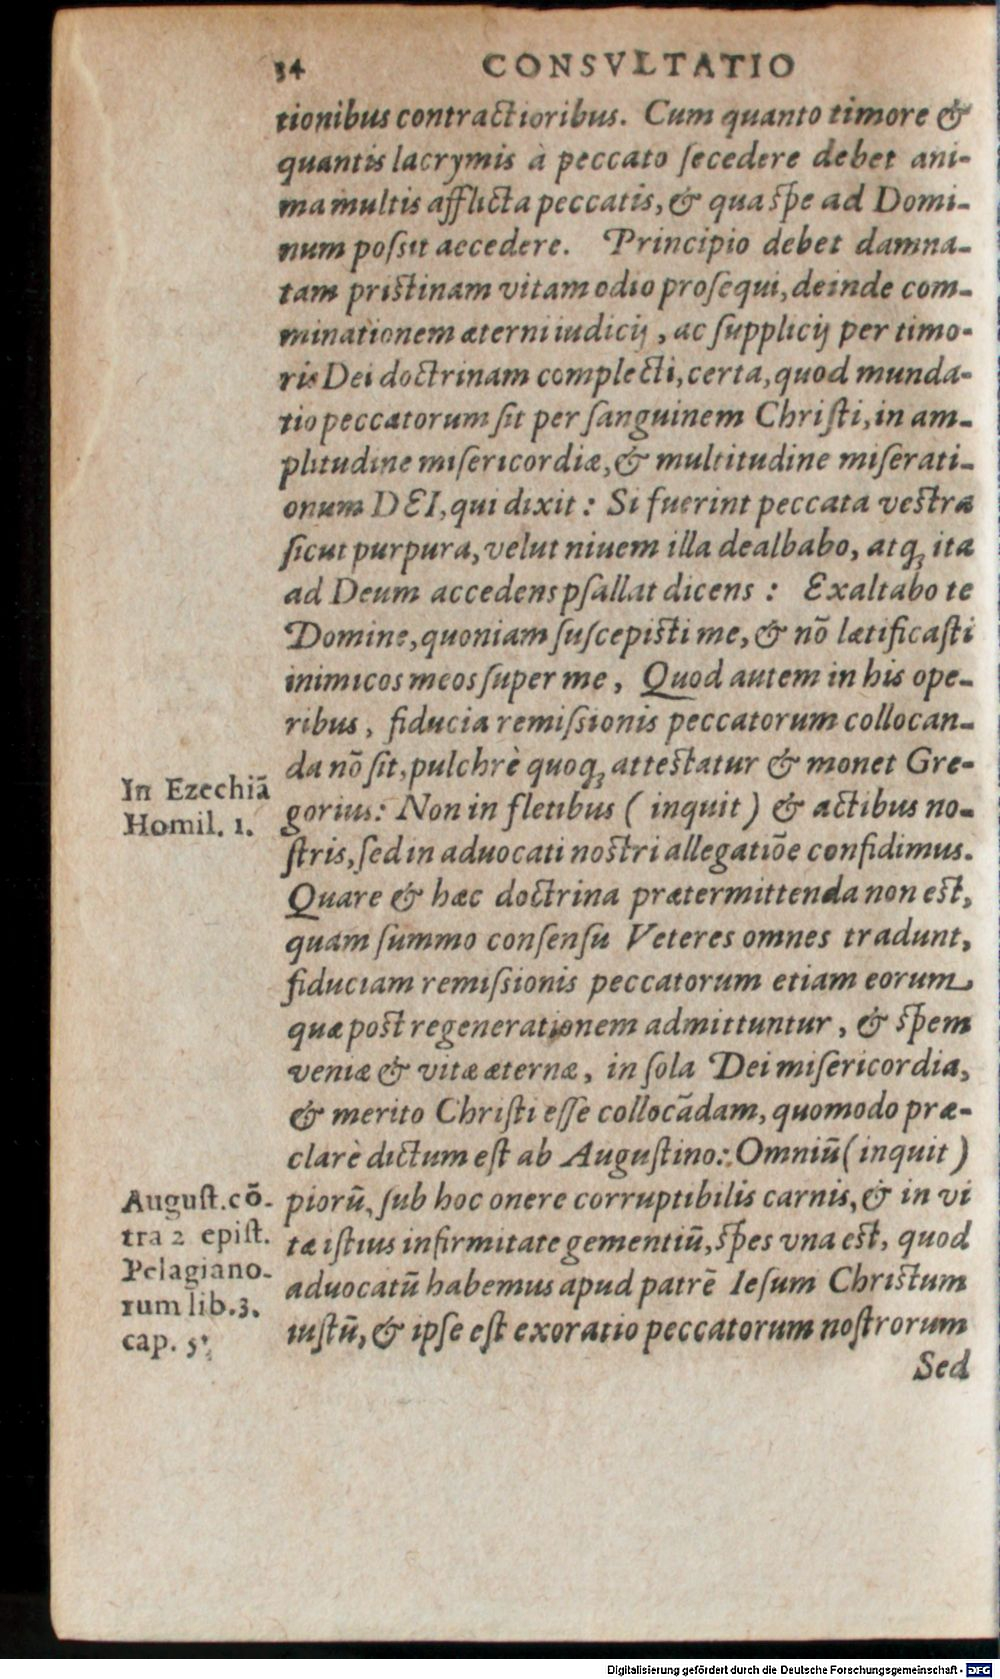 34 CONSVLTATIO
tionibus contractioribus. Cum quanto timore &
quantis lacrymis à peccato ſecedere debet ani-
ma multis afflicta peccatis, & qua ſpe ad Domi-
num poſsit accedere. Principio debet damna-
tam priſtinam vitam odio proſequi, deinde com-
minationem æterni iudicij, ac ſupplicij per timo-
ris Dei doctrinam complecti, certa, quod munda-
tio peccatorum ſit per ſanguinem Chriſti, in am-
plitudine miſericordiæ, & multitudine miſerati-
onum DEI, qui dixit: Si fuerint peccata veſtra
ſicut purpura, velut niuem illa dealbabo, atq; ita
ad Deum accedens pſallat dicens: Exaltabo te
Domine, quoniam ſuſcepiſti me, & nõ lætificaſti
inimicos meos ſuper me, Quod autem in his ope-
ribus, fiducia remiſsionis peccatorum collocan-
da nõ ſit, pulchrè quoq; atteſtatur & monet Gre-
In Ezechiã
Homil. 1.
gorius: Non in fletibus (inquit) & actibus no-
ſtris, ſed in aduocati noſtri allegatiõe confidimus.
Quare & hæc doctrina prætermittenda non eſt,
quam ſummo conſenſu Veteres omnes tradunt,
fiduciam remiſsionis peccatorum etiam eorum,
quæ poſt regenerationem admittuntur, & ſpem
veniæ & vitæ æternæ, in ſola Dei miſericordia,
& merito Chriſti eſſe collocãdam, quomodo præ-
clarè dictum eſt ab Auguſtino: Omniũ (inquit)
Auguſt. cõ-
tra 2 epiſt.
Pelagiano-
rum lib. 3.
cap. 5.
piorũ, ſub hoc onere corruptibilis carnis, & in vi
tæ iſtius infirmitate gementiũ, ſpes vna eſt, quod
aduocatũ habemus apud patrẽ Ieſum Chriſtum
iuſtũ, & ipſe eſt exoratio peccatorum noſtrorum
Sed
Digitalisierung gefördert durch die Deutsche Forschungsgemeinschaft - DFG